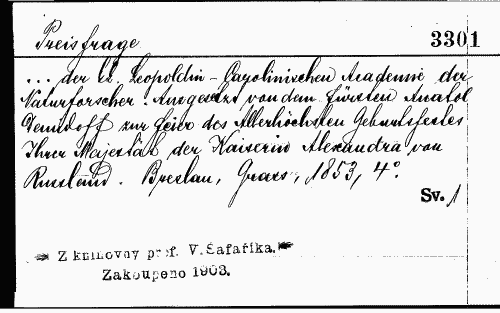 Preisfrage 3301
... der k. Leopoldin-Carolinischen Academie der
Naturforscher. Ausgesetzt von dem Fürsten Anatol
Demidoff zur Feier des Allerhöchsten Geburtsfestes
Ihrer Majestät der Kaiserin Alexandra von
Russland. Breslau, Grass, 1853, 4°.
Sv. 1
Z knihovny prof. V. Šafaříka.
Zakoupeno 1903.